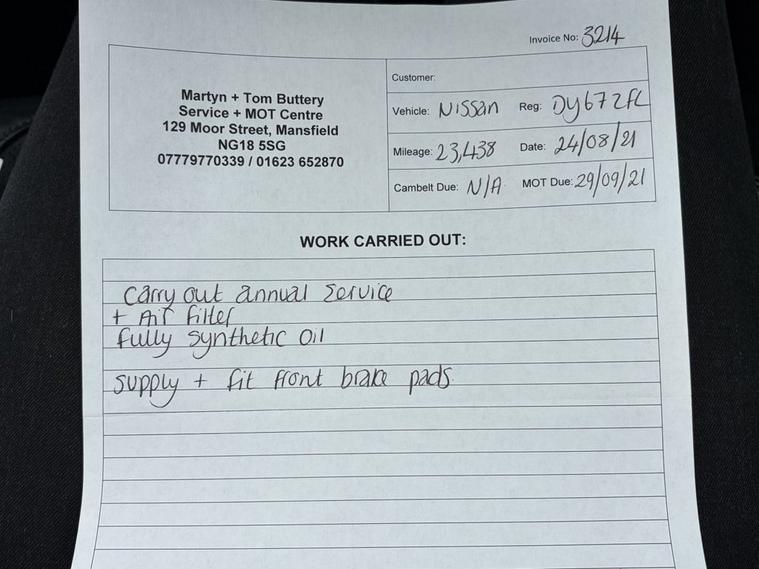 Invoice No: 3214
Martyn + Tom Buttery
Service + MOT Centre
129 Moor Street, Mansfield
NG18 5SG
07779770339 / 01623 652870
Customer:
Vehicle: Nissan Reg: DY67 ZFL
Mileage: 23,438 Date: 24/08/21
Cambelt Due: N/A MOT Due: 29/09/21
WORK CARRIED OUT:
Carry out annual service
+ Air filter
fully synthetic oil
supply + fit front brake pads